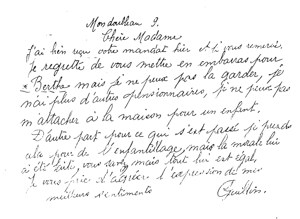 Mondoubleau 9.
Chère Madame
J'ai bien reçu votre mandat hier et je vous remercie.
Je regrette de vous mettre en embarras pour
Berthe mais je ne peux pas la garder, je
n'ai plus d'autres pensionnaires, je ne peux pas
m'attacher à la maison pour un enfant.
D'autre part pour ce qui s'est passé je prends
cela pour de l'enfantillage, mais la morale lui
a été faite, vous savez mais tout lui est égal,
Je vous prie d'agréer l'expression de mes
meilleurs sentiments